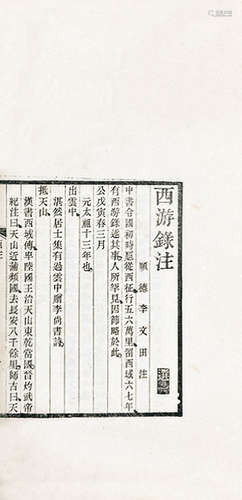 西游錄注
順德李文田注
中書令國初時扈從西征行五六萬里留西域六七年
有西游錄述其事人所罕見因節略於此
公戊寅春三月
元太祖十三年也
出雲中
湛然居士集有過雲中贈李尚書詩
抵天山
漢書西域傳卑陸國王治天山東乾當國晉灼武帝
紀注曰天山近蒲類國去長安八千餘里師古曰天